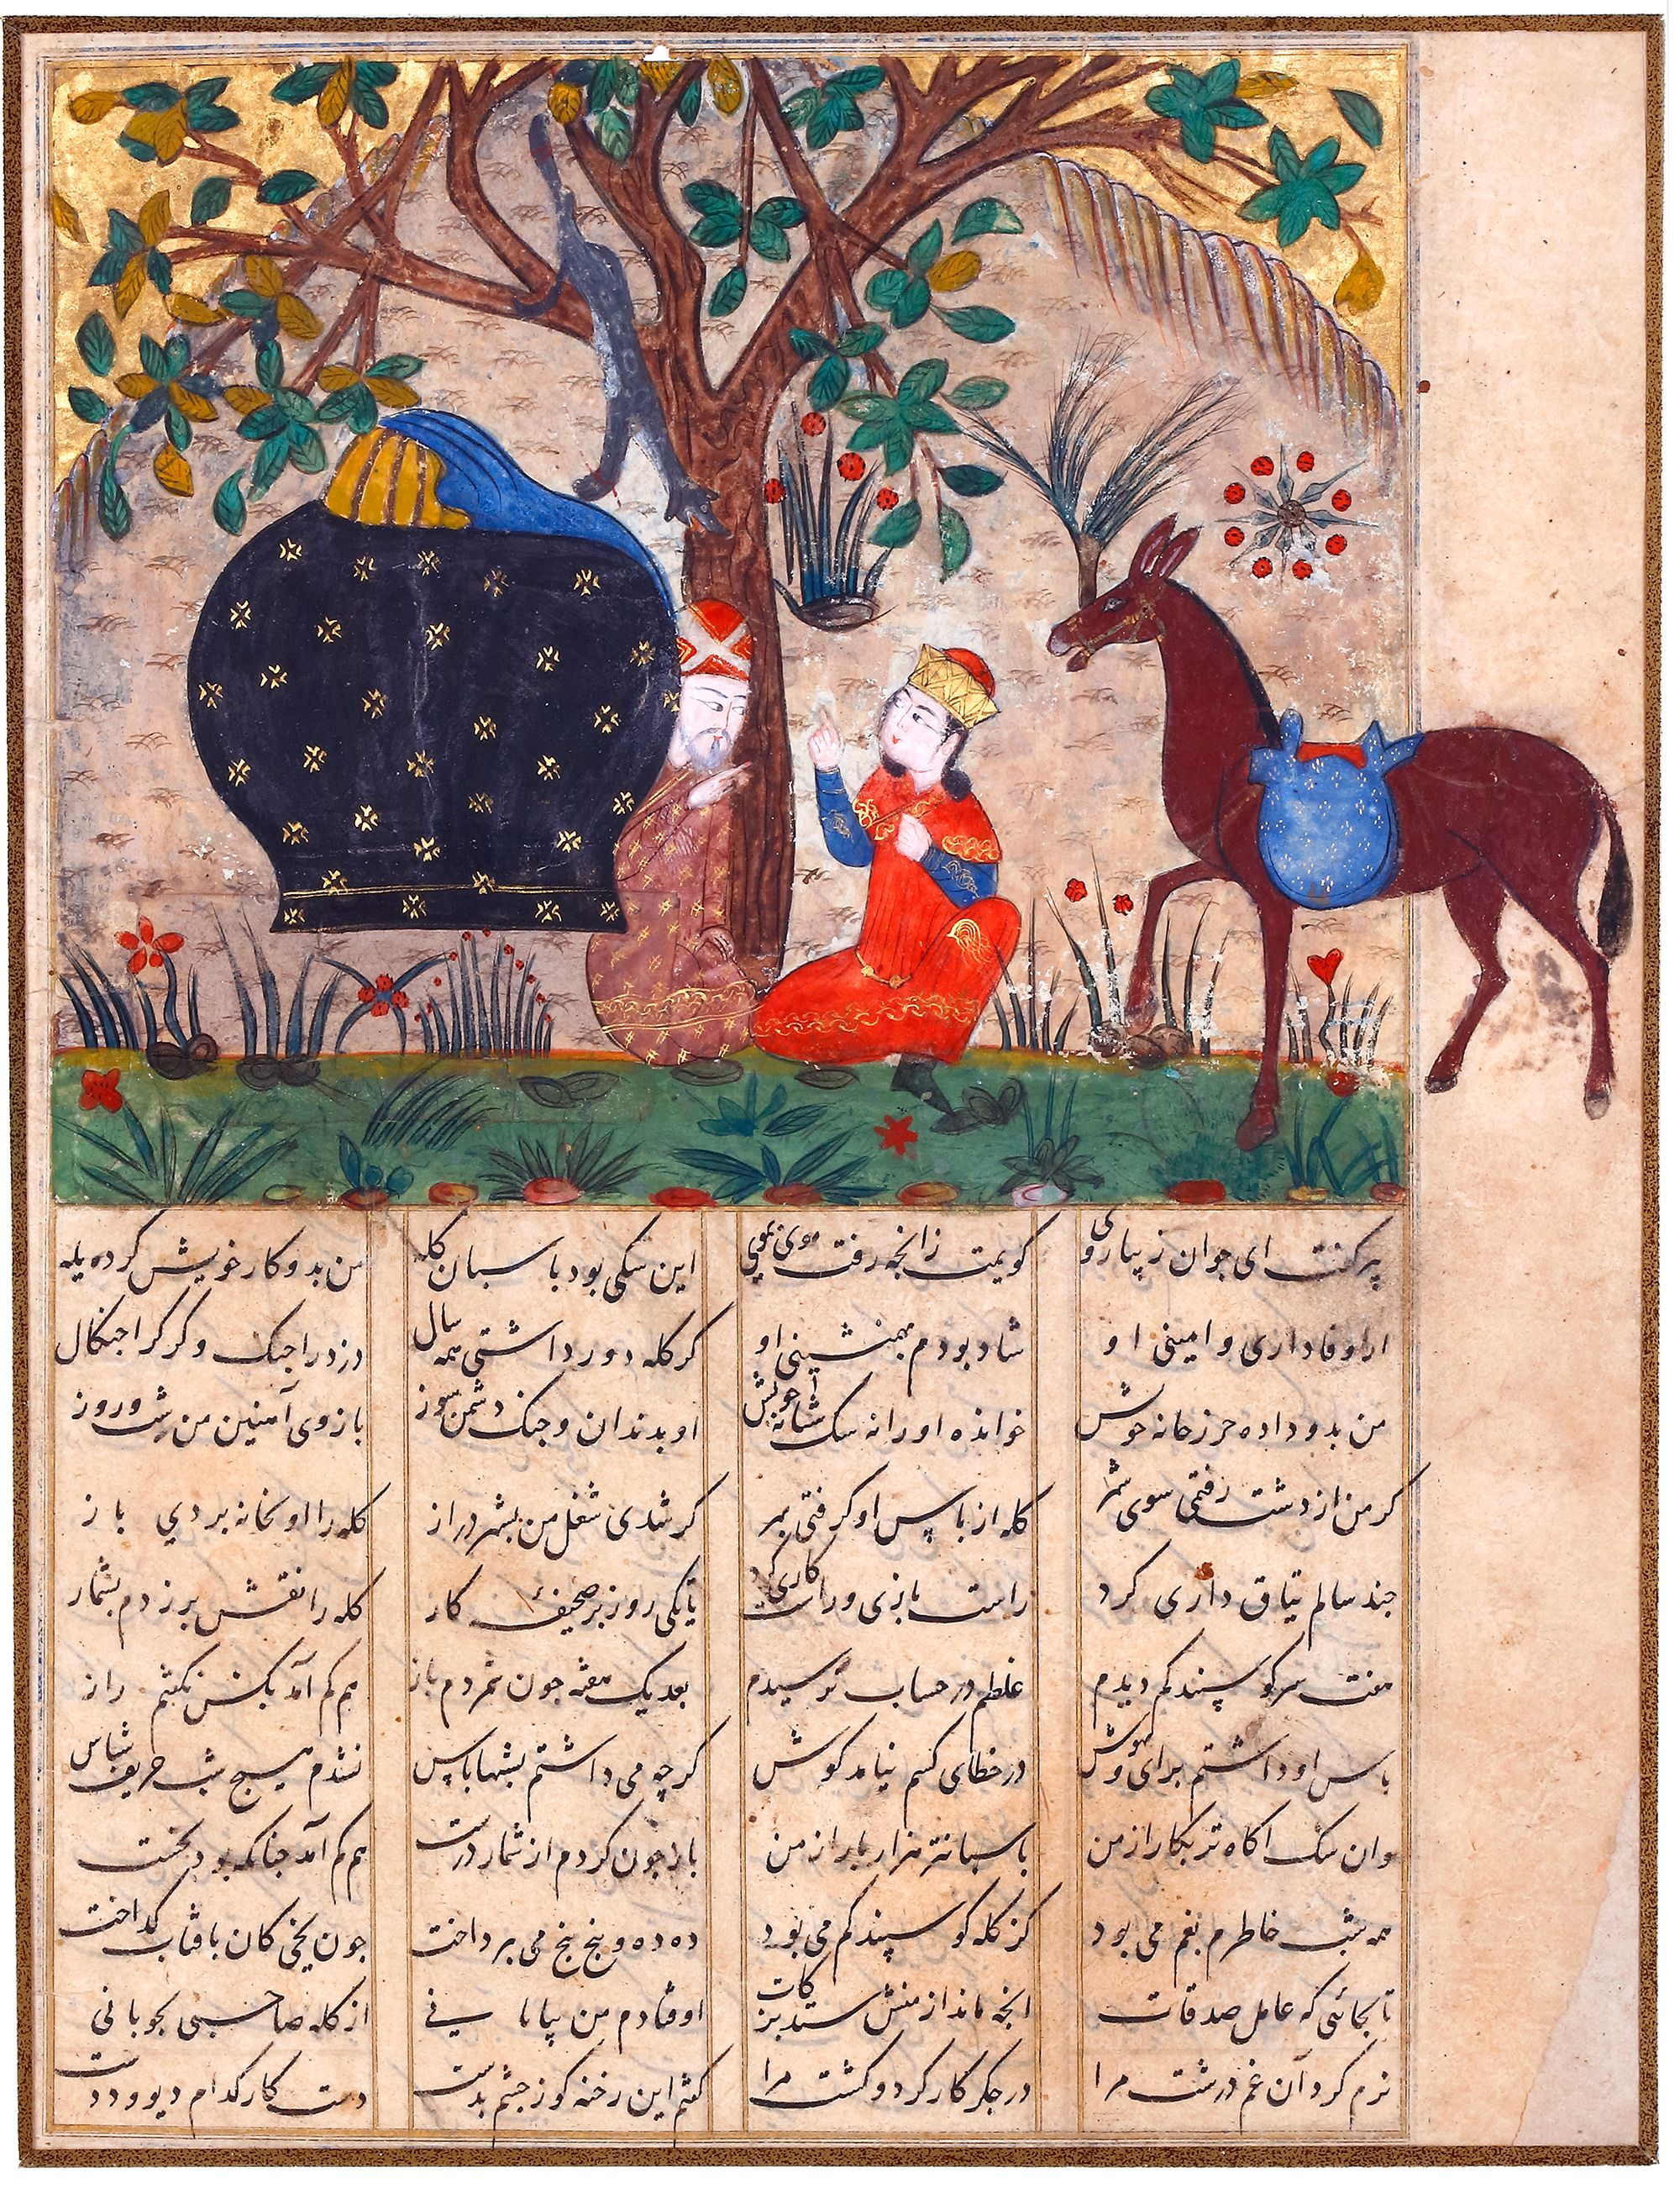 پیر گفت ای جوان زیبا روی گویمت زانچه رفت موی بموی این سگی بود پاسبان گله من بدو کار خویش کرده یله
از وفاداری و امینی او شاد بودم بهمنشینی او گر گله دور داشتی همه سال دزد را چنگ و گرگ را چنگال
من بدو داده حرز خانه خویش خوانده او را نه سگ شبانه خویش او بدندان و چنگ دشمن سوز بازوی آهنین من شب و روز
گر من از دشت رفتمی سوی شهر گله از پاس او گرفتی بهر گر شدی شغل من بشهر دراز گله را او بخانه بردی باز
چند سالم یتاق داری کرد راست بازی و راست کاری کرد تا یکی روز بر صحیفه کار گله را نقش برزدم بشمار
هفت سر گوسپند کم دیدم غلطم در حساب ترسیدم بعد یک هفته چون شمردم باز هم کم آمد بکس نگفتم راز
پاس او داشتم برای و هوش در خطای کسم نیامد گوش گرچه می داشتم بشبها پاس نشدم هیچ شب حریف شناس
وان سگ آگاه تر بکار از من پاسبان تر هزار بار از من باز چون کردم از شمار درست هم کم آمد چنانکه بود نخست
همه شب خاطرم بغم می بود کز گله گوسپند کم می بود ده ده و پنج پنج می پرداخت چون یخی کان بآفتاب گداخت
تا بجائی که عامل صدقات آنچه ماند از منش ستد بزکات اوفتادم من بیابانی از گله صاحبی بچوبانی
نرم کرد آن غم درشت مرا در جگر کار کرد و کشت مرا گفتم این رخنه گر ز چشم بدست دست کار کدام دیو و ددست